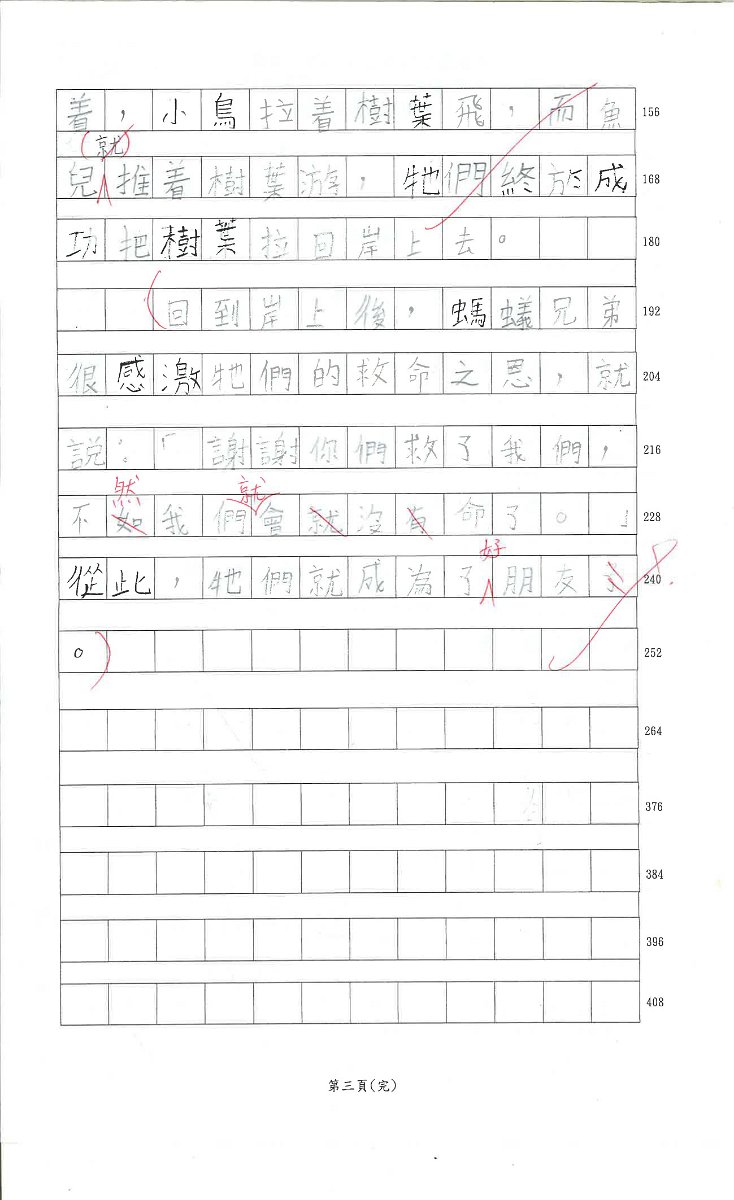 着，小鳥拉着樹葉飛，而魚 156
（就）
兒推着樹葉游，牠們終於成 168
功把樹葉拉回岸上去。 180
回到岸上後，螞蟻兄弟 192
很感激牠們的救命之恩，就 204
說：「謝謝你們救了我們， 216
然 就
不如我們會就沒有命了。」 228
好
從此，牠們就成為了朋友 240
。 252
264
376
384
396
408
第三頁(完)